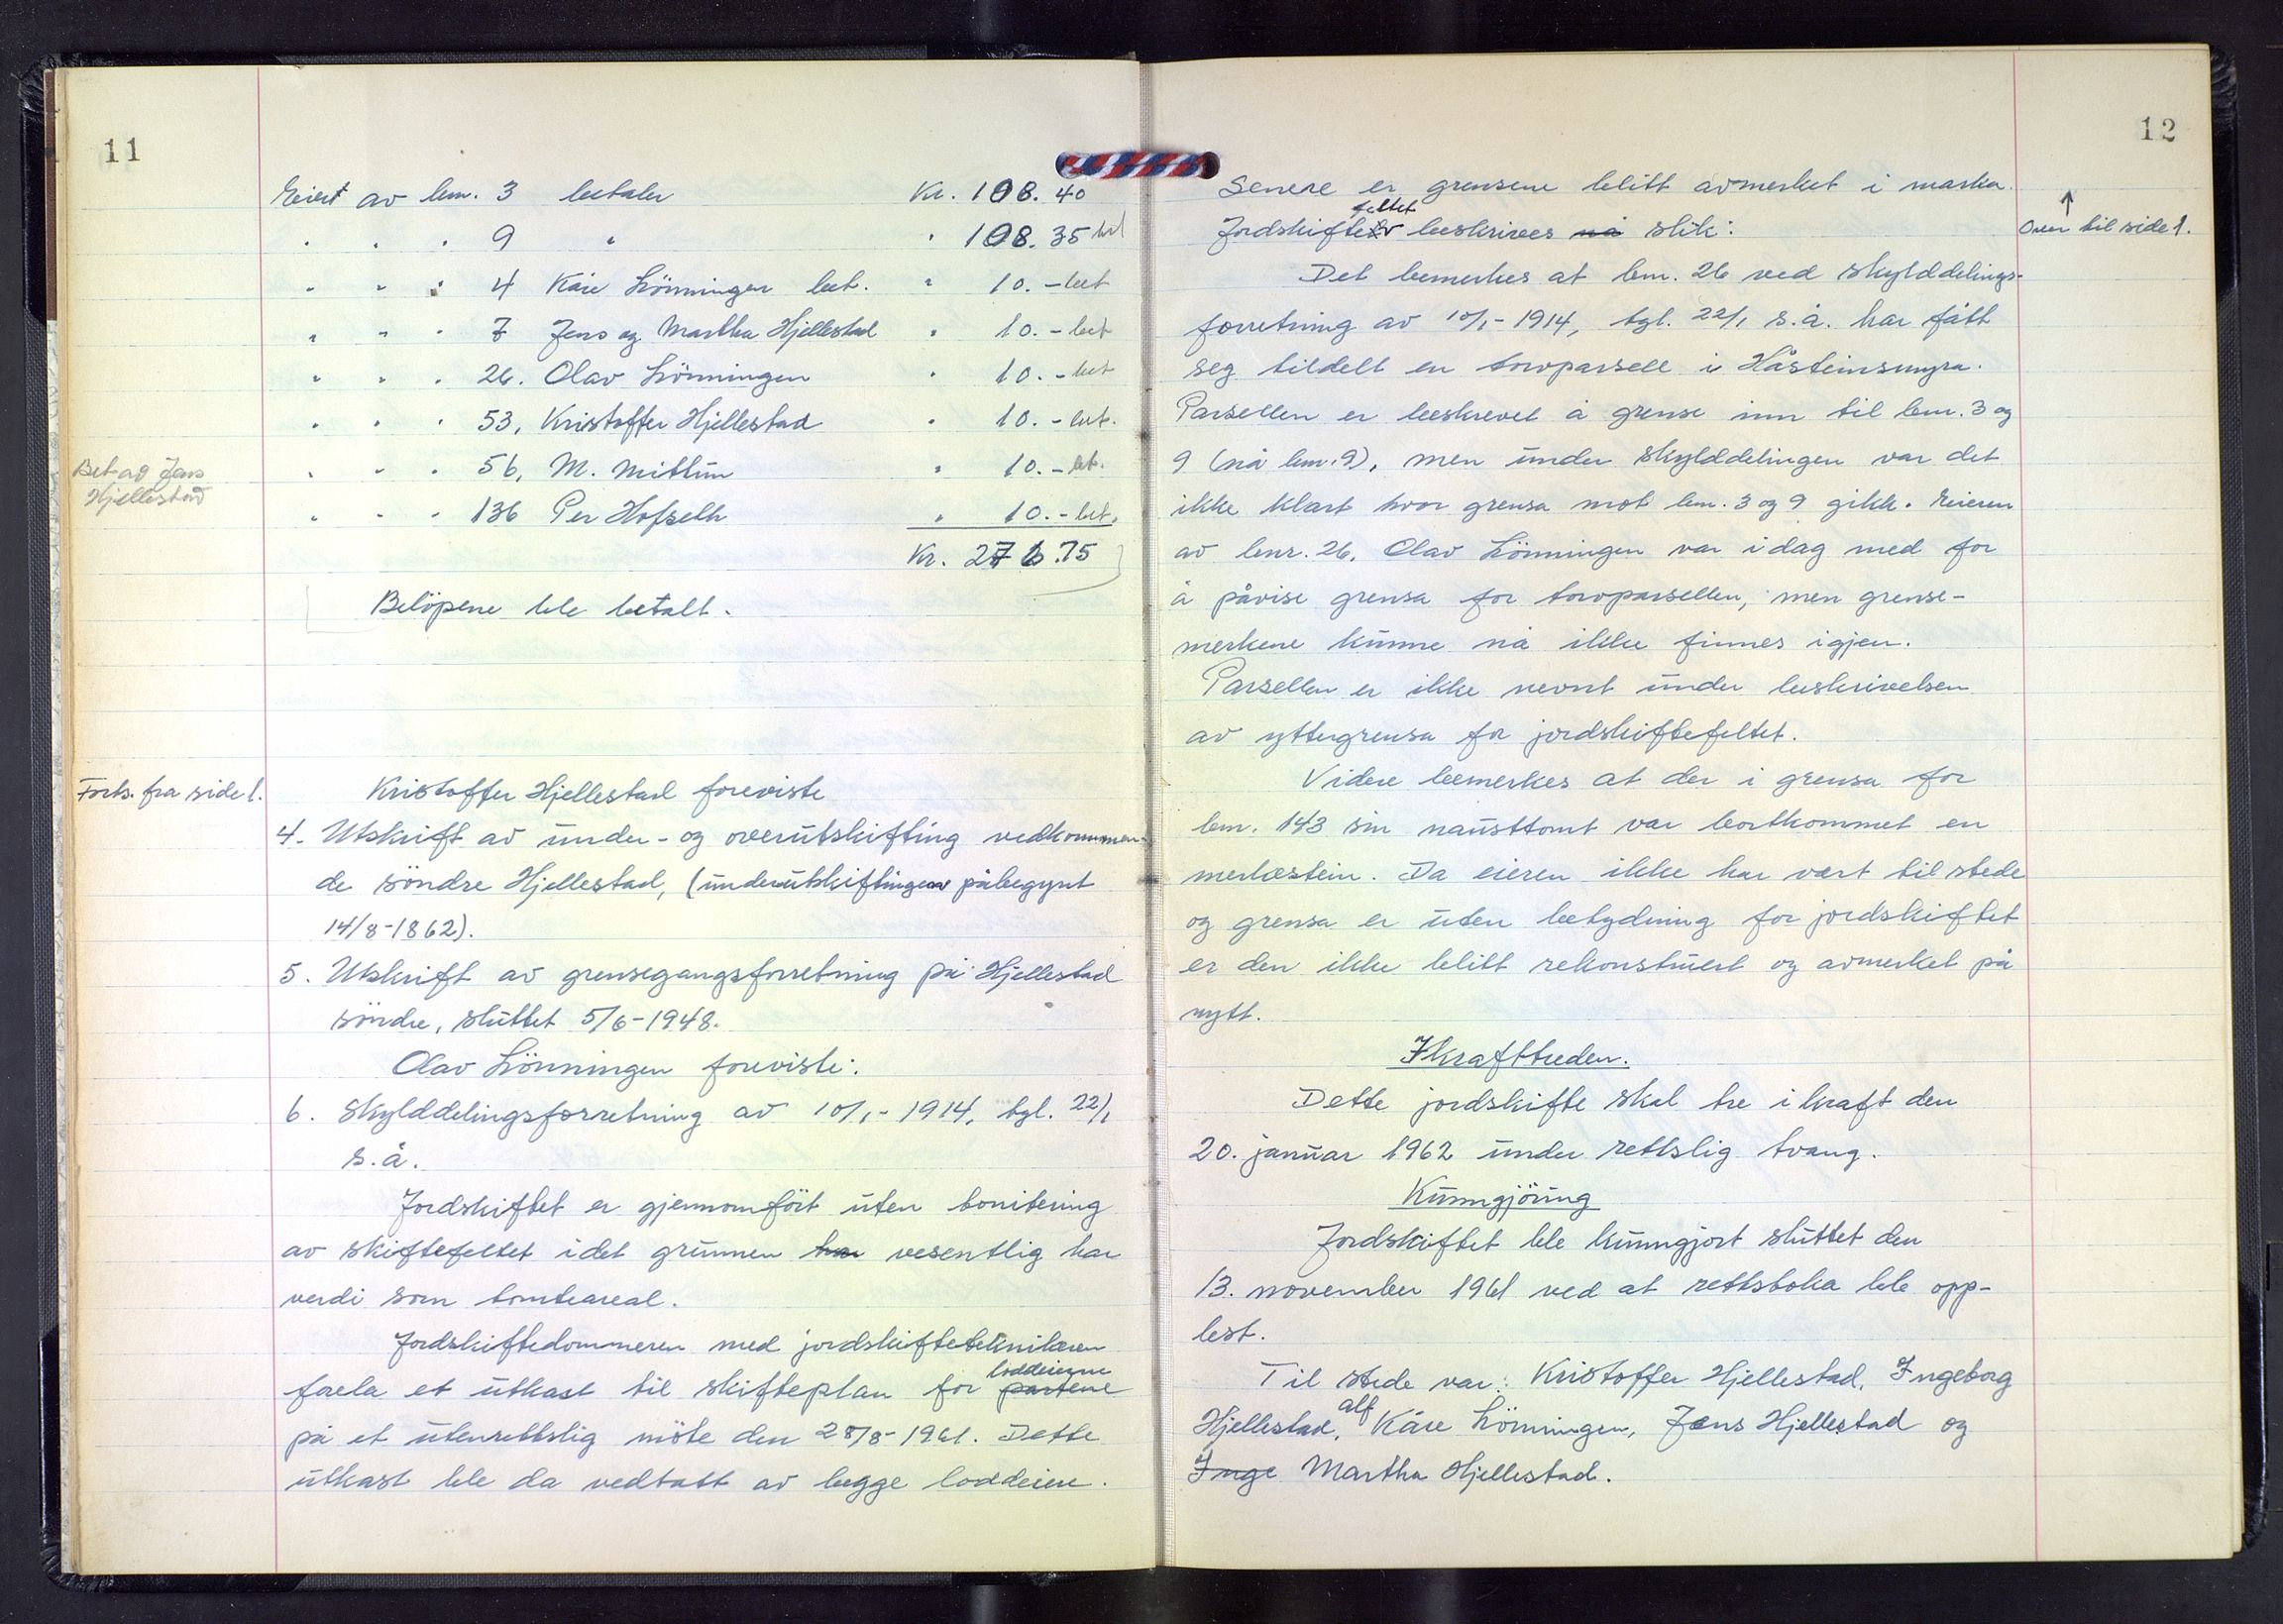 11
Eiert av bnr. 3 betaler Kr. 108.40
" " " 9 " " 108.35 bet
" " " 4 Kåre Lönningen bet. " 10.- bet
" " " 7 Jens og Martha Hjellestad " 10.- bet
" " " 26. Olav Lönningen " 10.- bet
" " " 53, Kristoffer Hjellestad " 10.- bet.
Bet av Jens
Hjellestad
" " " 56, M. Mittün " 10.- bet.
" " " 136 Per Hofseth " 10.- bet.
Kr. 276.75
Belöpene ble betalt.
Forts. fra side 1.
Kristoffer Hjellestad foreviste
4. Utskrift av under- og overutskifting vedkommen-
de söndre Hjellestad, (underutskiftingen påbegynt
14/8-1862).
5. Utskrift av grensegangsforretning på Hjellestad
söndre, sluttet 5/6-1948.
Olav Lönningen foreviste:
6. Skylddelingsforretning av 10/1-1914, tgl. 22/1
s.å.
Jordskiftet er gjennomfört uten bonitering
av skiftefeltet idet grunnen har vesentlig har
verdi som tomteareal.
Jordskiftedommeren med jordskifteteknikeren
loddeierne
forela et utkast til skifteplan for partene
på et utenrettslig möte den 28/8-1961. Dette
utkast ble da vedtatt av begge loddeiere.
12
Senere er grensene blitt avmerket i marka.
Over til side 1.
feltet
Jordskifte beskrives nå slik:
Det bemerkes at bnr. 26 ved skylddelings-
forretning av 10/1-1914, tgl. 22/1 s.å. har fått
seg tildelt en torvparsell i Håsteinsmyra.
Parsellen er beskrevet å grense inn til bnr. 3 og
9 (nå bnr. 9), men under skylddelingen var det
ikke klart hvor grensa mot bnr. 3 og 9 gikk. Eieren
av bnr. 26, Olav Lönningen var idag med for
å påvise grensa for torvparsellen, men grense-
merkene kunne nå ikke finnes igjen.
Parsellen er ikke nevnt under beskrivelsen
av yttergrensa for jordskiftefeltet.
Videre bemerkes at der i grensa for
bnr. 143 sin nausttomt var bortkommet en
merkestein. Da eieren ikke har vært til stede
og grensa er uten betydning for jordskiftet
er den ikke blitt rekonstruert og avmerket på
nytt.
Ikrafttreden.
Dette jordskifte skal tre i kraft den
20. januar 1962 under rettslig tvang.
Kunngjöring
Jordskiftet ble kunngjort sluttet den
13. november 1961 ved at rettsboka ble opp-
lest.
Til stede var: Kristoffer Hjellestad, Ingeborg
alf
Hjellestad, Kåre Lönningen, Jens Hjellestad og
Inge Martha Hjellestad.